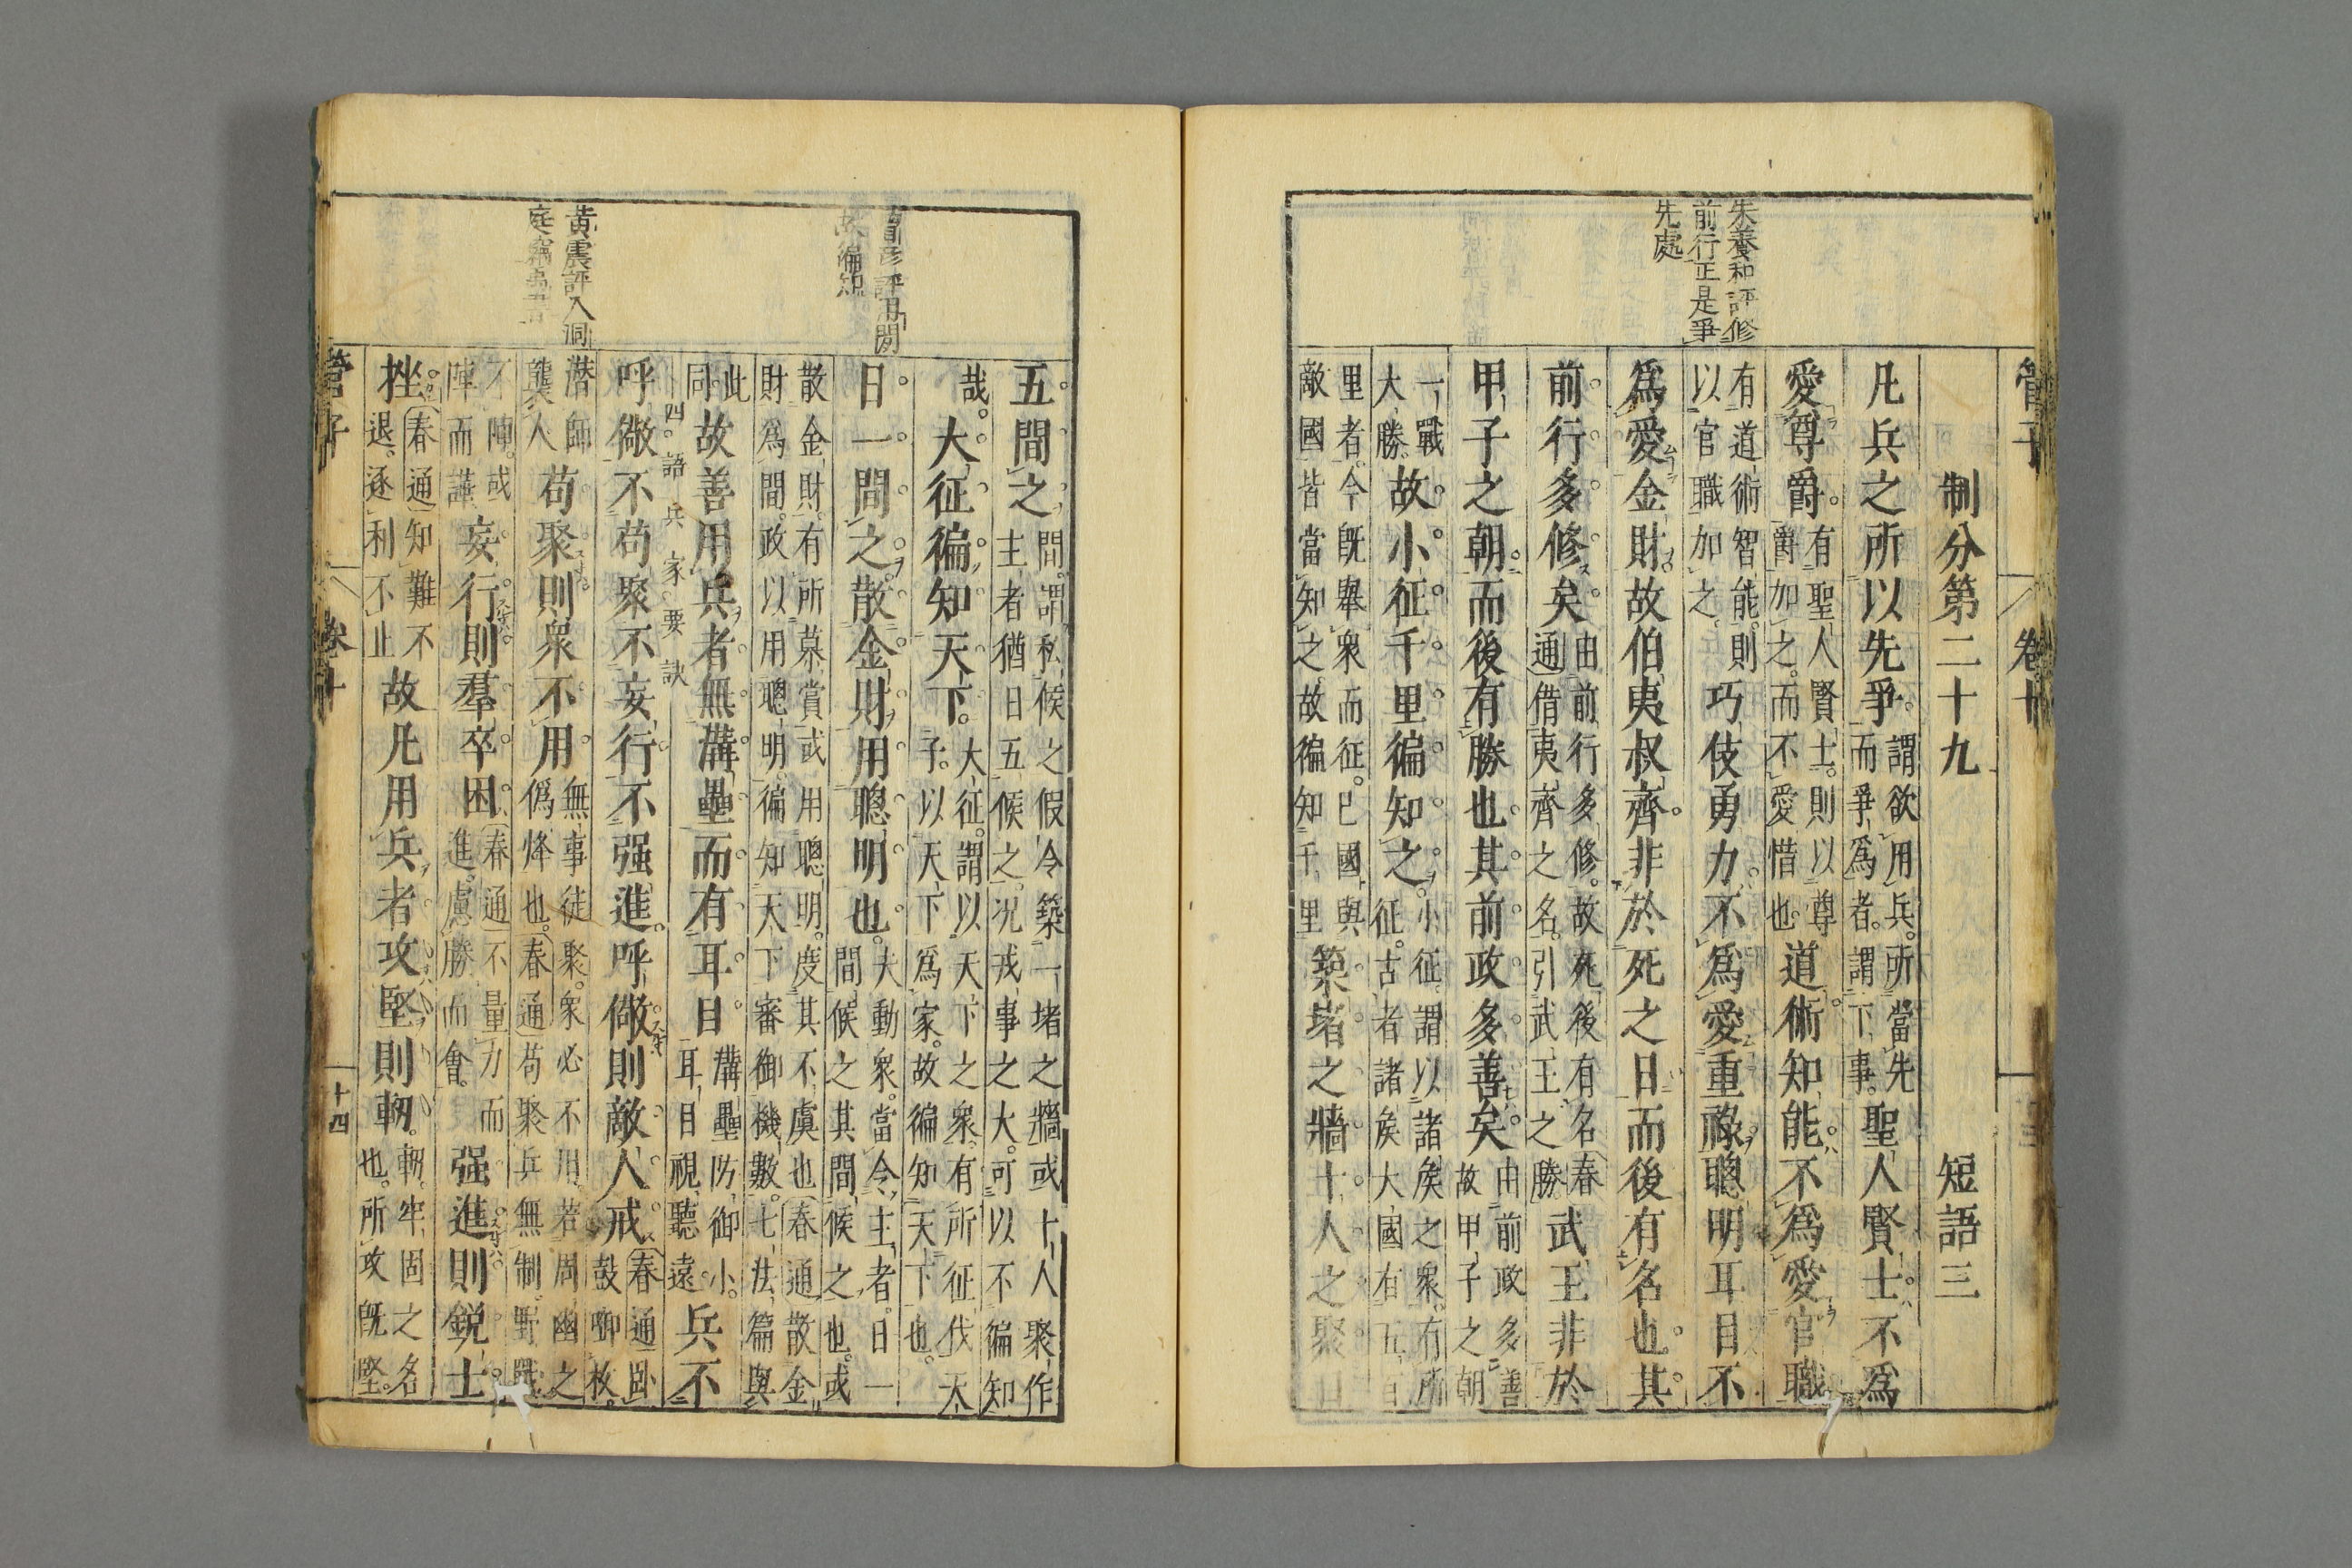 管子
卷十
朱養和評修
前行正是爭
先處
制分第二十九
短語三
凡兵之所以先爭
謂欲用兵所當先
而爭爲者謂下事
聖人賢士不爲
愛尊爵
有聖人賢士則以尊
爵加之而不愛惜也
道術知能不爲愛官職
有道術智能則
以官職加之
巧伎勇力不爲愛重祿聰明耳目不
爲愛金財故伯夷叔齊非於死之日而後有名也其
前行多修矣
由前行多修故死後有名春
通借夷齊之名引武王之勝
武王非於
甲子之朝而後有勝也其前政多善矣
由前政多善
故甲子之朝
一戰
大勝
故小征千里徧知之
小征謂以諸侯之衆有所
征古者諸侯大國有五百
里者今旣舉衆而征已國與
敵國皆當知之故徧知千里
築堵之牆十人之聚日
五間之
間謂私候之假令築一堵之牆或十人聚作
主者猶日五候之况戎事之大可以不徧知
哉
大征徧知天下
大征謂以天下之衆有所征伐天
子以天下爲家故徧知天下也
日一間之散金財用聰明也
夫動衆當令主者日一
間候之其間候之也或
散金財有所募賞或用聰明度其不虞也春通散金
財爲間政以用聰明徧知天下審御機數七法篇與
此
同
故善用兵者無溝壘而有耳目
溝壘防御小
耳目視聽遠
兵不
四語兵家要訣
呼儆不苟聚不妄行不强進呼儆則敵人戒
春通臥
鼓啣枚
潜師
襲人
苟聚則衆不用
無事徒聚衆必不用若周幽之
僞烽也春通苟聚兵無制野戰
不陣或
陣而譁
妄行則羣卒困
春通不量力而
進慮勝而會
强進則鋭士
挫
春通知難不
退逐利不止
故凡用兵者攻堅則軔
軔牢固之名
也所攻旣堅
評用間
徧知
黄震評入洞
庭
管子
卷十
十四